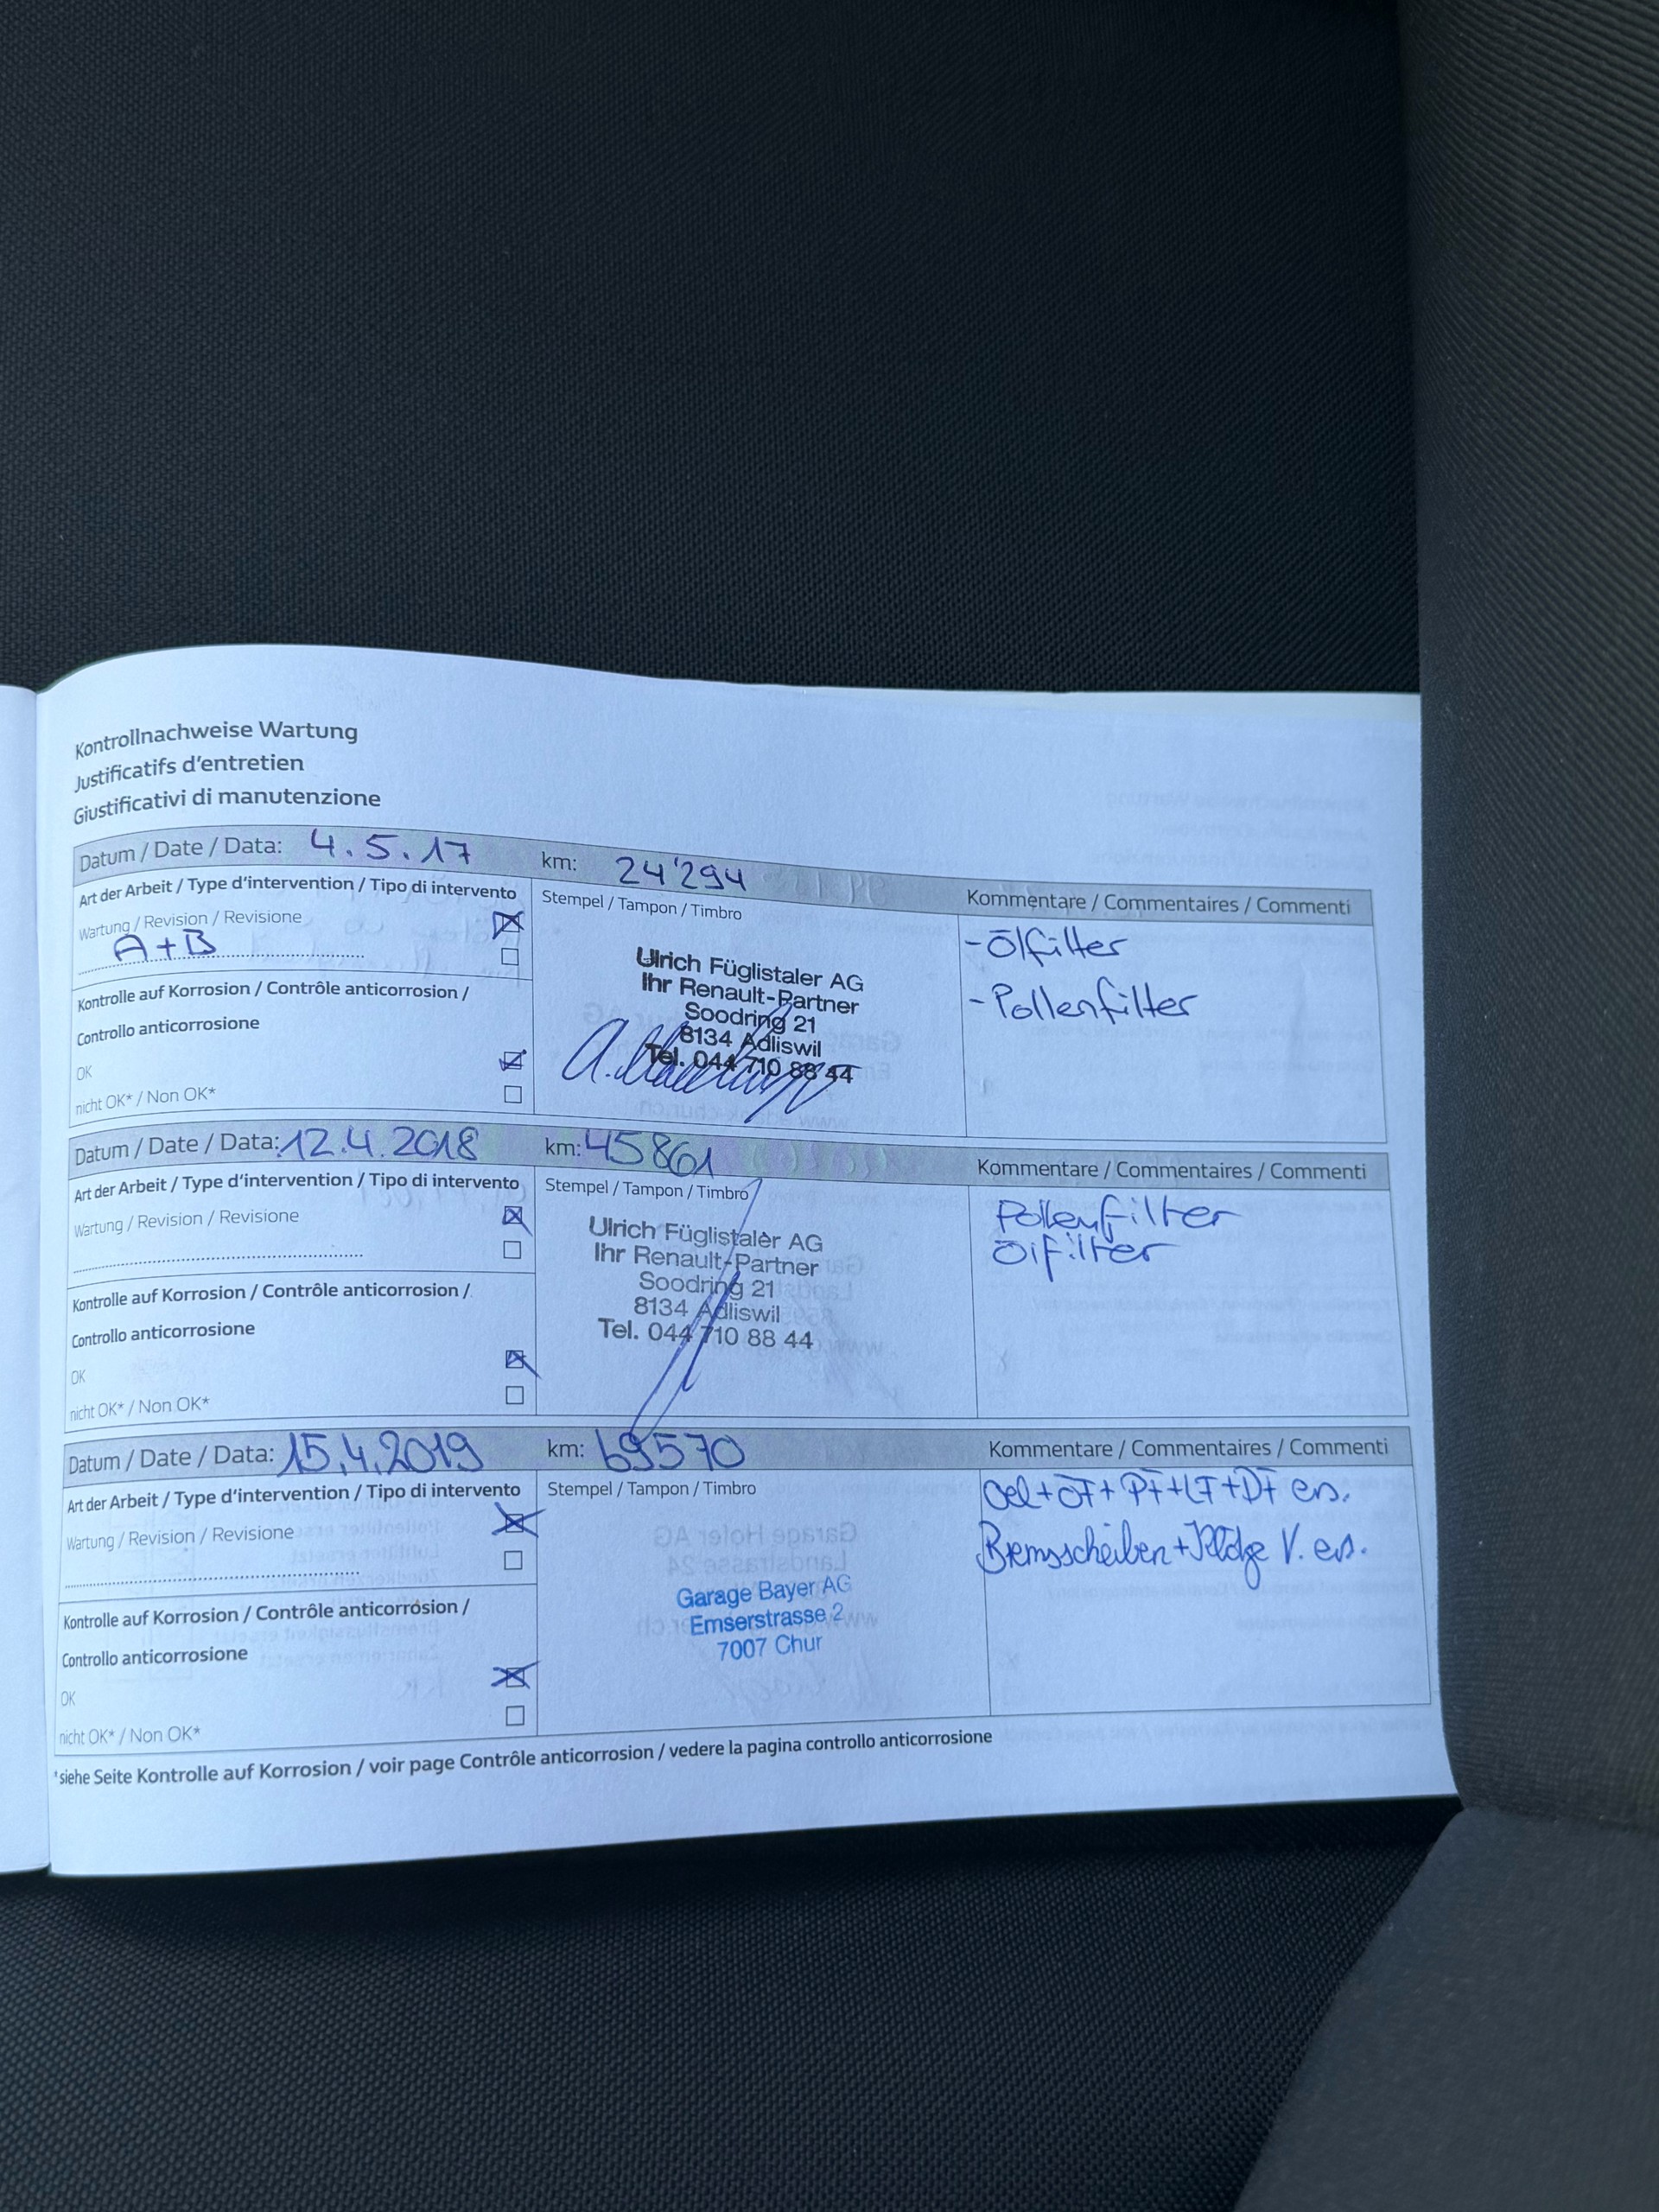 Kontrollnachweise Wartung
Justificatifs d'entretien
Giustificativi di manutenzione
Datum / Date / Data: 4.5.17 km: 24'294
Art der Arbeit / Type d'intervention / Tipo di intervento
Wartung / Revision / Revisione
A+B
Kontrolle auf Korrosion / Contrôle anticorrosion /
Controllo anticorrosione
OK
nicht OK* / Non OK*
Stempel / Tampon / Timbro
Ulrich Füglistaler AG
Ihr Renault-Partner
Soodring 21
8134 Adliswil
Tel. 044 710 88 44
Kommentare / Commentaires / Commenti
- Ölfilter
- Pollenfilter
Datum / Date / Data: 12.4.2018 km: 45861
Art der Arbeit / Type d'intervention / Tipo di intervento
Wartung / Revision / Revisione
Kontrolle auf Korrosion / Contrôle anticorrosion /
Controllo anticorrosione
OK
nicht OK* / Non OK*
Stempel / Tampon / Timbro
Ulrich Füglistaler AG
Ihr Renault-Partner
Soodring 21
8134 Adliswil
Tel. 044 710 88 44
Kommentare / Commentaires / Commenti
Pollenfilter
Ölfilter
Datum / Date / Data: 15.4.2019 km: 69570
Art der Arbeit / Type d'intervention / Tipo di intervento
Wartung / Revision / Revisione
Kontrolle auf Korrosion / Contrôle anticorrosion /
Controllo anticorrosione
OK
nicht OK* / Non OK*
Stempel / Tampon / Timbro
Garage Bayer AG
Emserstrasse 2
7007 Chur
Kommentare / Commentaires / Commenti
Oel+ÖF+PF+LF+DF ers.
Bremsscheiben+ V. ers.
*siehe Seite Kontrolle auf Korrosion / voir page Contrôle anticorrosion / vedere la pagina controllo anticorrosione